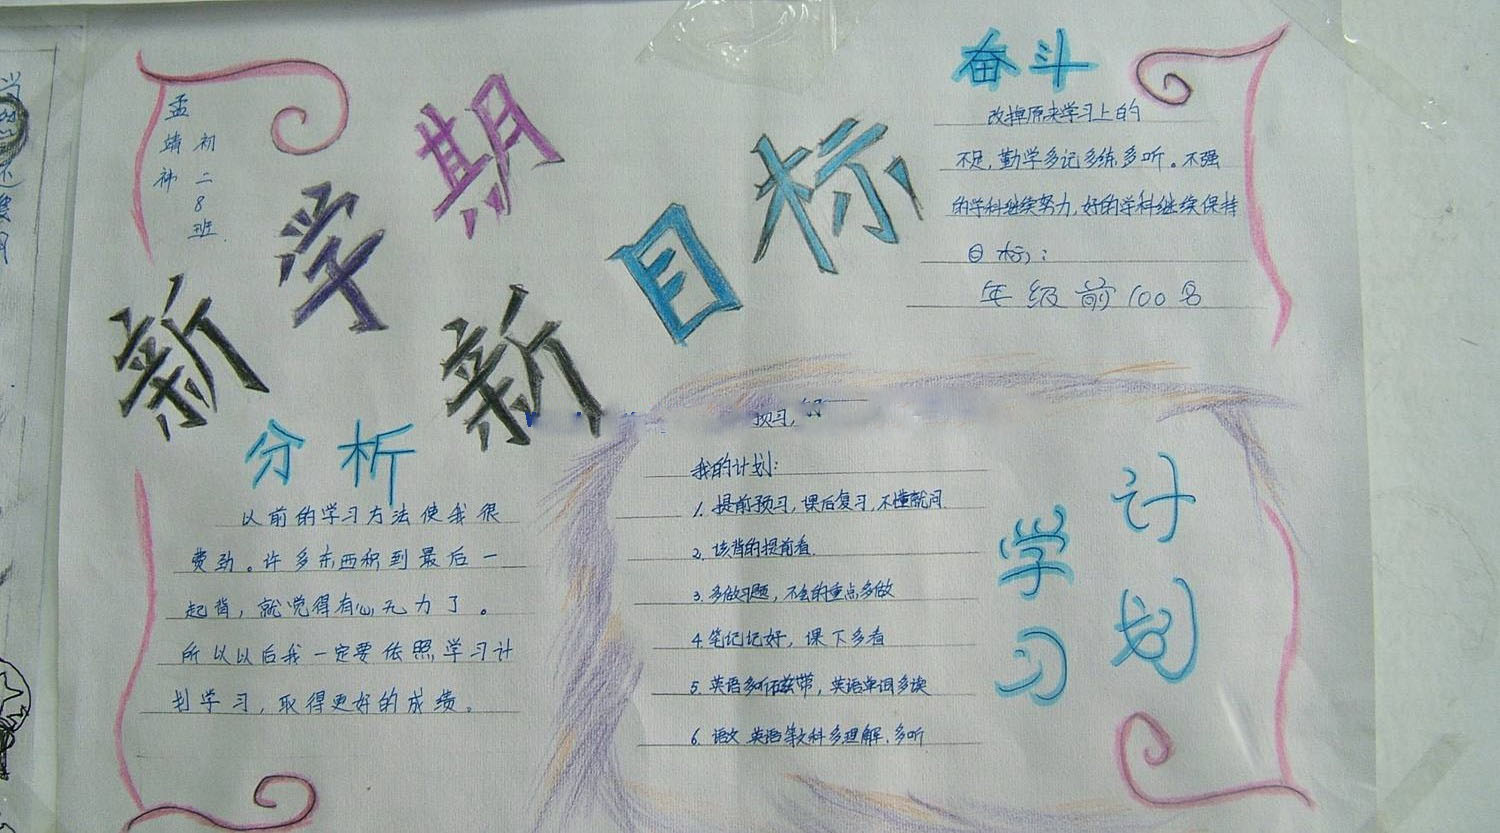 孟靖
初二8班
新学期
新目标
奋斗
改掉原来学习上的
不足，勤学多记多练多听。不强
的学科继续努力，好的学科继续保持
目标：
年级前100名
分析
以前的学习方法使我很
费劲。许多东西积到最后一
起背，就觉得有心无力了。
所以以后我一定要依照学习计
划学习，取得更好的成绩。
预习，
我的计划：
1. 提前预习，课后复习，不懂就问.
2. 该背的提前看.
3. 多做习题，不会的重点多做
4. 笔记记好，课下多看
5. 英语多听磁带，英语单词多读
6. 语文 英语等文科多理解，多听
学习
计划